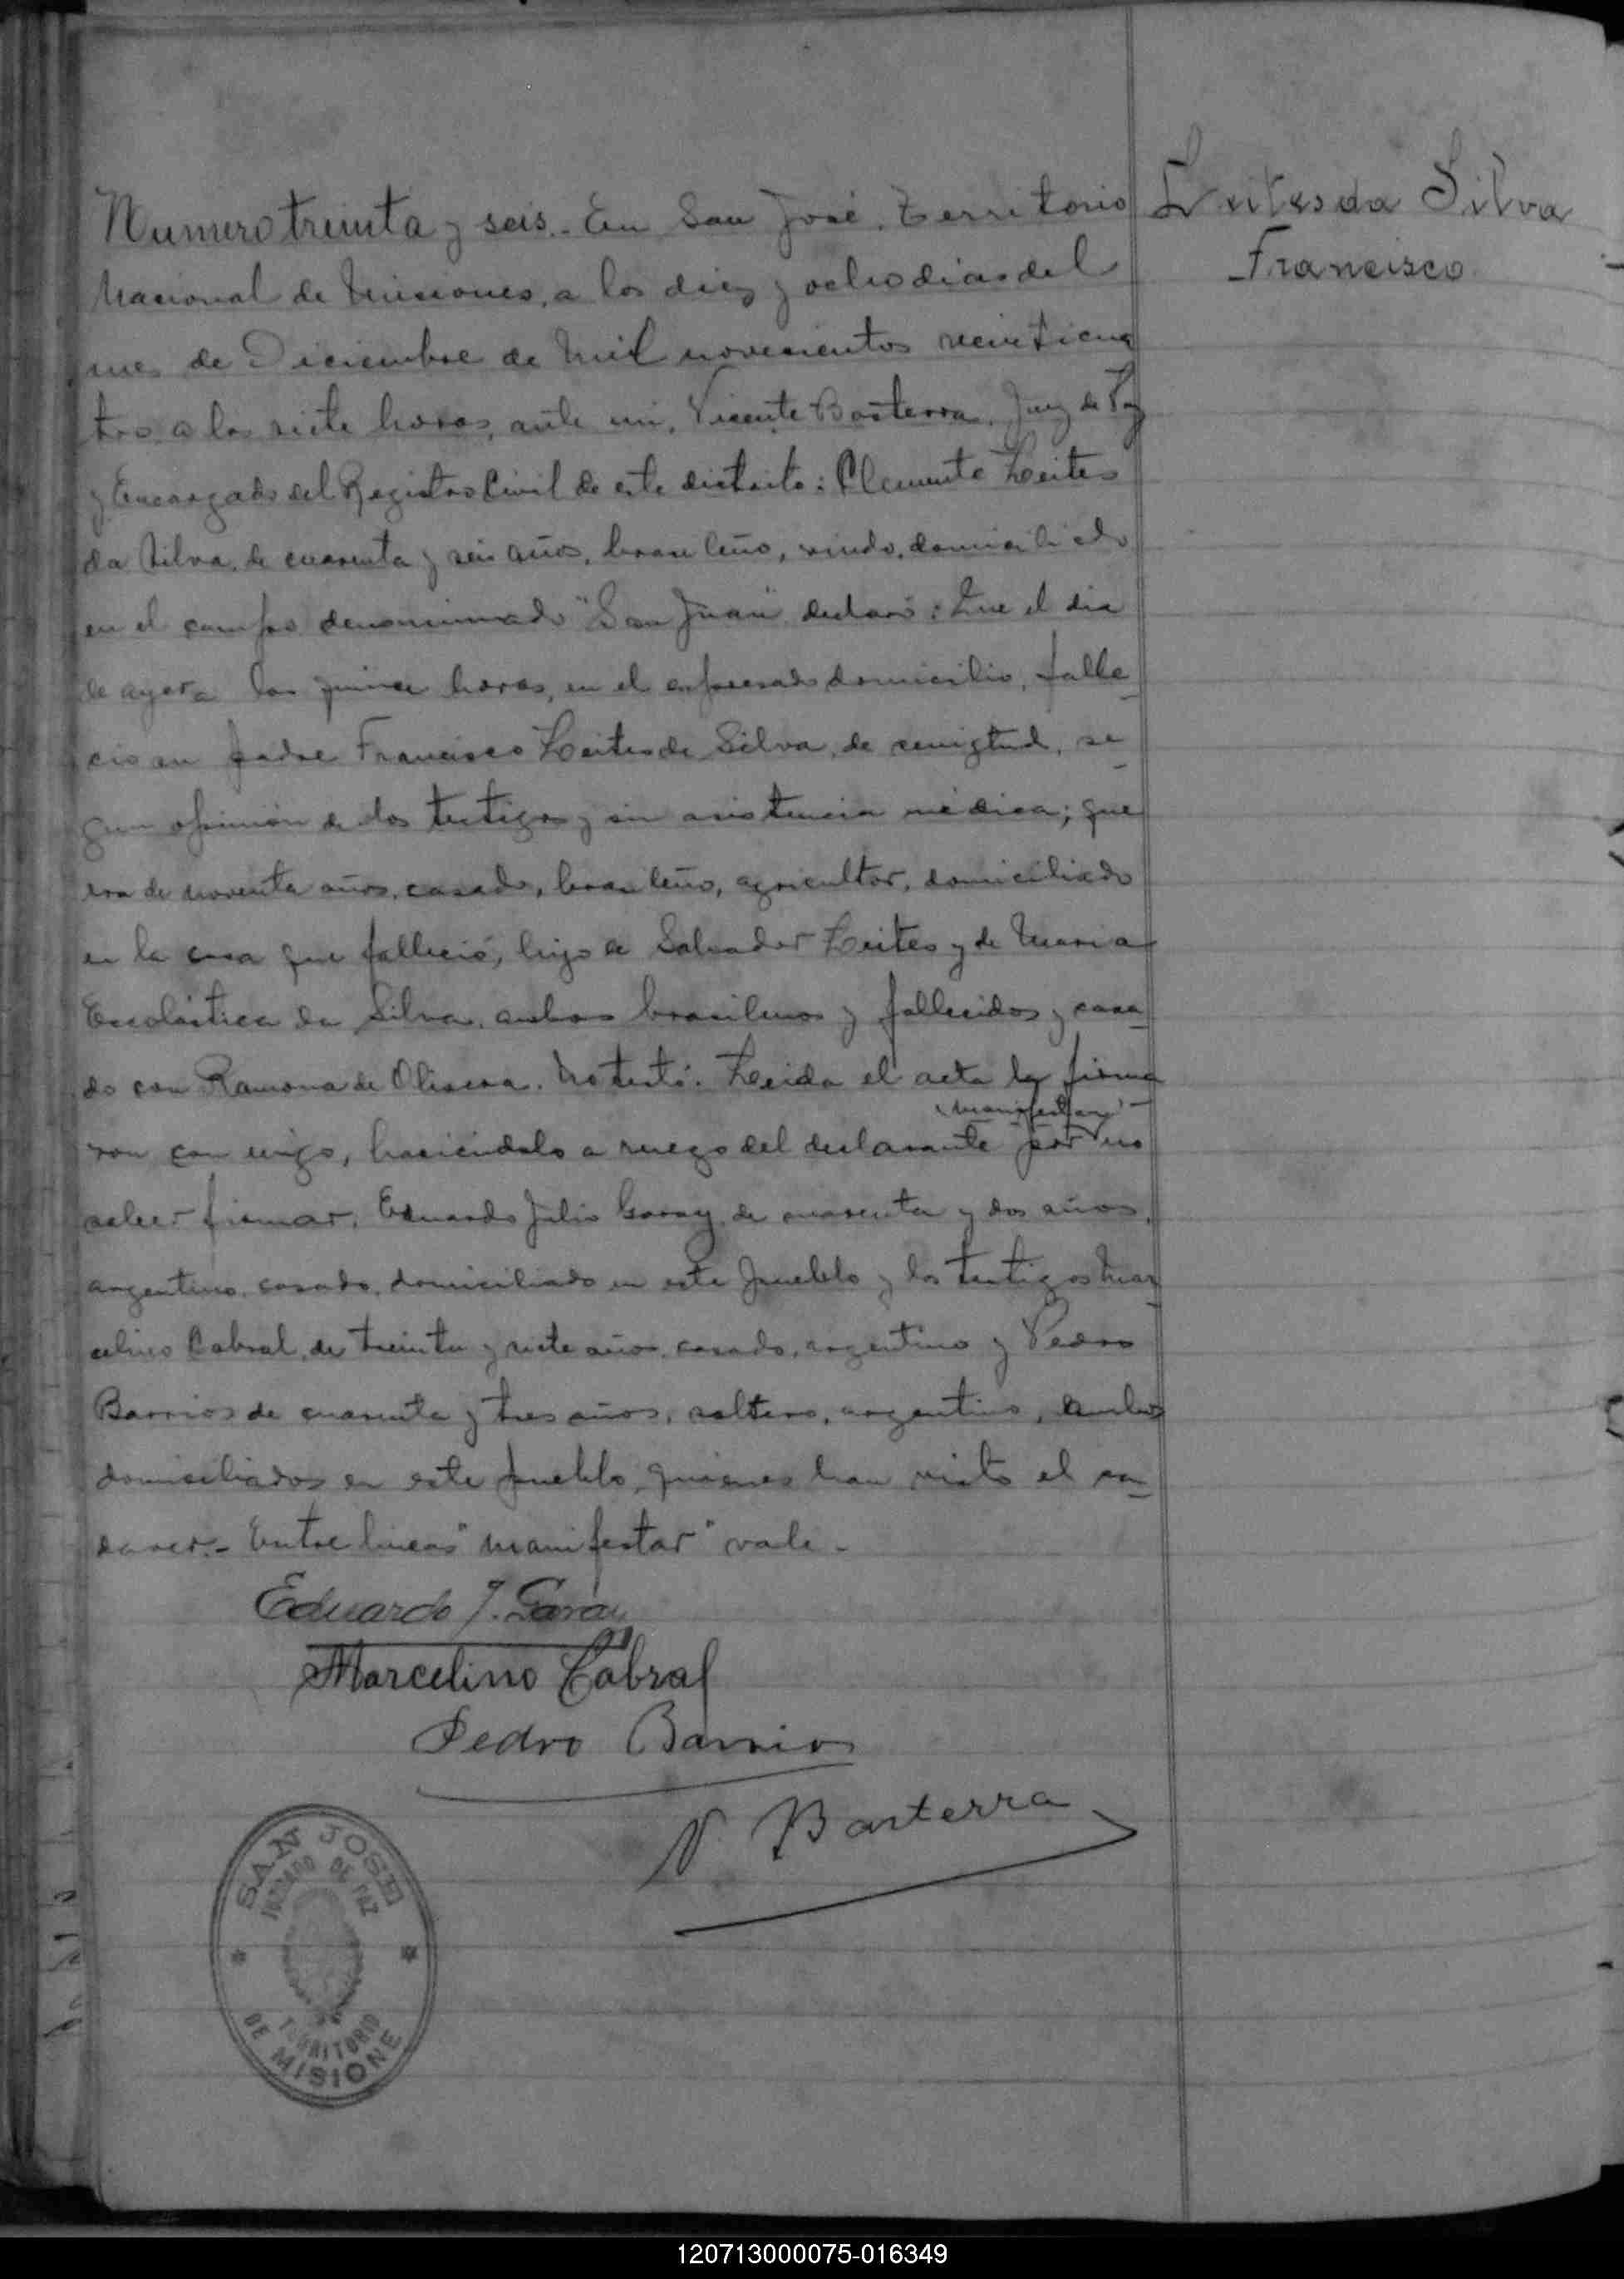 Leites da Silva
Francisco
Numero treinta y seis.- En San José, Territorio
Nacional de Misiones, a los diez y ocho dias del
mes de Diciembre de mil novecientos veinticua
tro a las siete horas, ante mi, Vicente Basterra, Juez de Paz
y Encargado del Registro Civil de este distrito: Clemente Leites
da Silva, de cuarenta y seis años, brasileño, viudo, domiciliado
en el campo denominado "San Juan" declaró: Que el dia
de ayer a las quince horas, en el expresado domicilio, falle_
ció su padre Francisco Leites da Silva, de senigtud, se_
gun opinión de los testigos y sin asistencia médica; que
era de noventa años, casado, brasileño, agricultor, domiciliado
en la casa que falleció, hijo de Salvador Leites y de Maria
Escolástica da Silva, ambos brasilenos y fallecidos y casa_
do con Ramona de Olivera. No testó. Leida el acta la firma
"manifestar"-
ron con migo, haciéndolo a ruego del declarante por no
saber firmar, Eduardo Julio Garay, de cuarenta y dos años,
argentino, casado, domiciliado en este pueblo y los testigos Mar_
celino Cabral, de treinta y siete años, casado, argentino y Pedro
Barrios de cuarenta y tres años, soltero, argentino, ambos
domiciliados en este pueblo, quienes han visto el ca_
daver.- Entre lineas "manifestar" vale.-
Eduardo J. Garay
Marcelino Cabral
Pedro Barrios
V. Basterra
SAN JOSE
JUZGADO DE PAZ
TERRITORIO
DE MISIONES
120713000075-016349